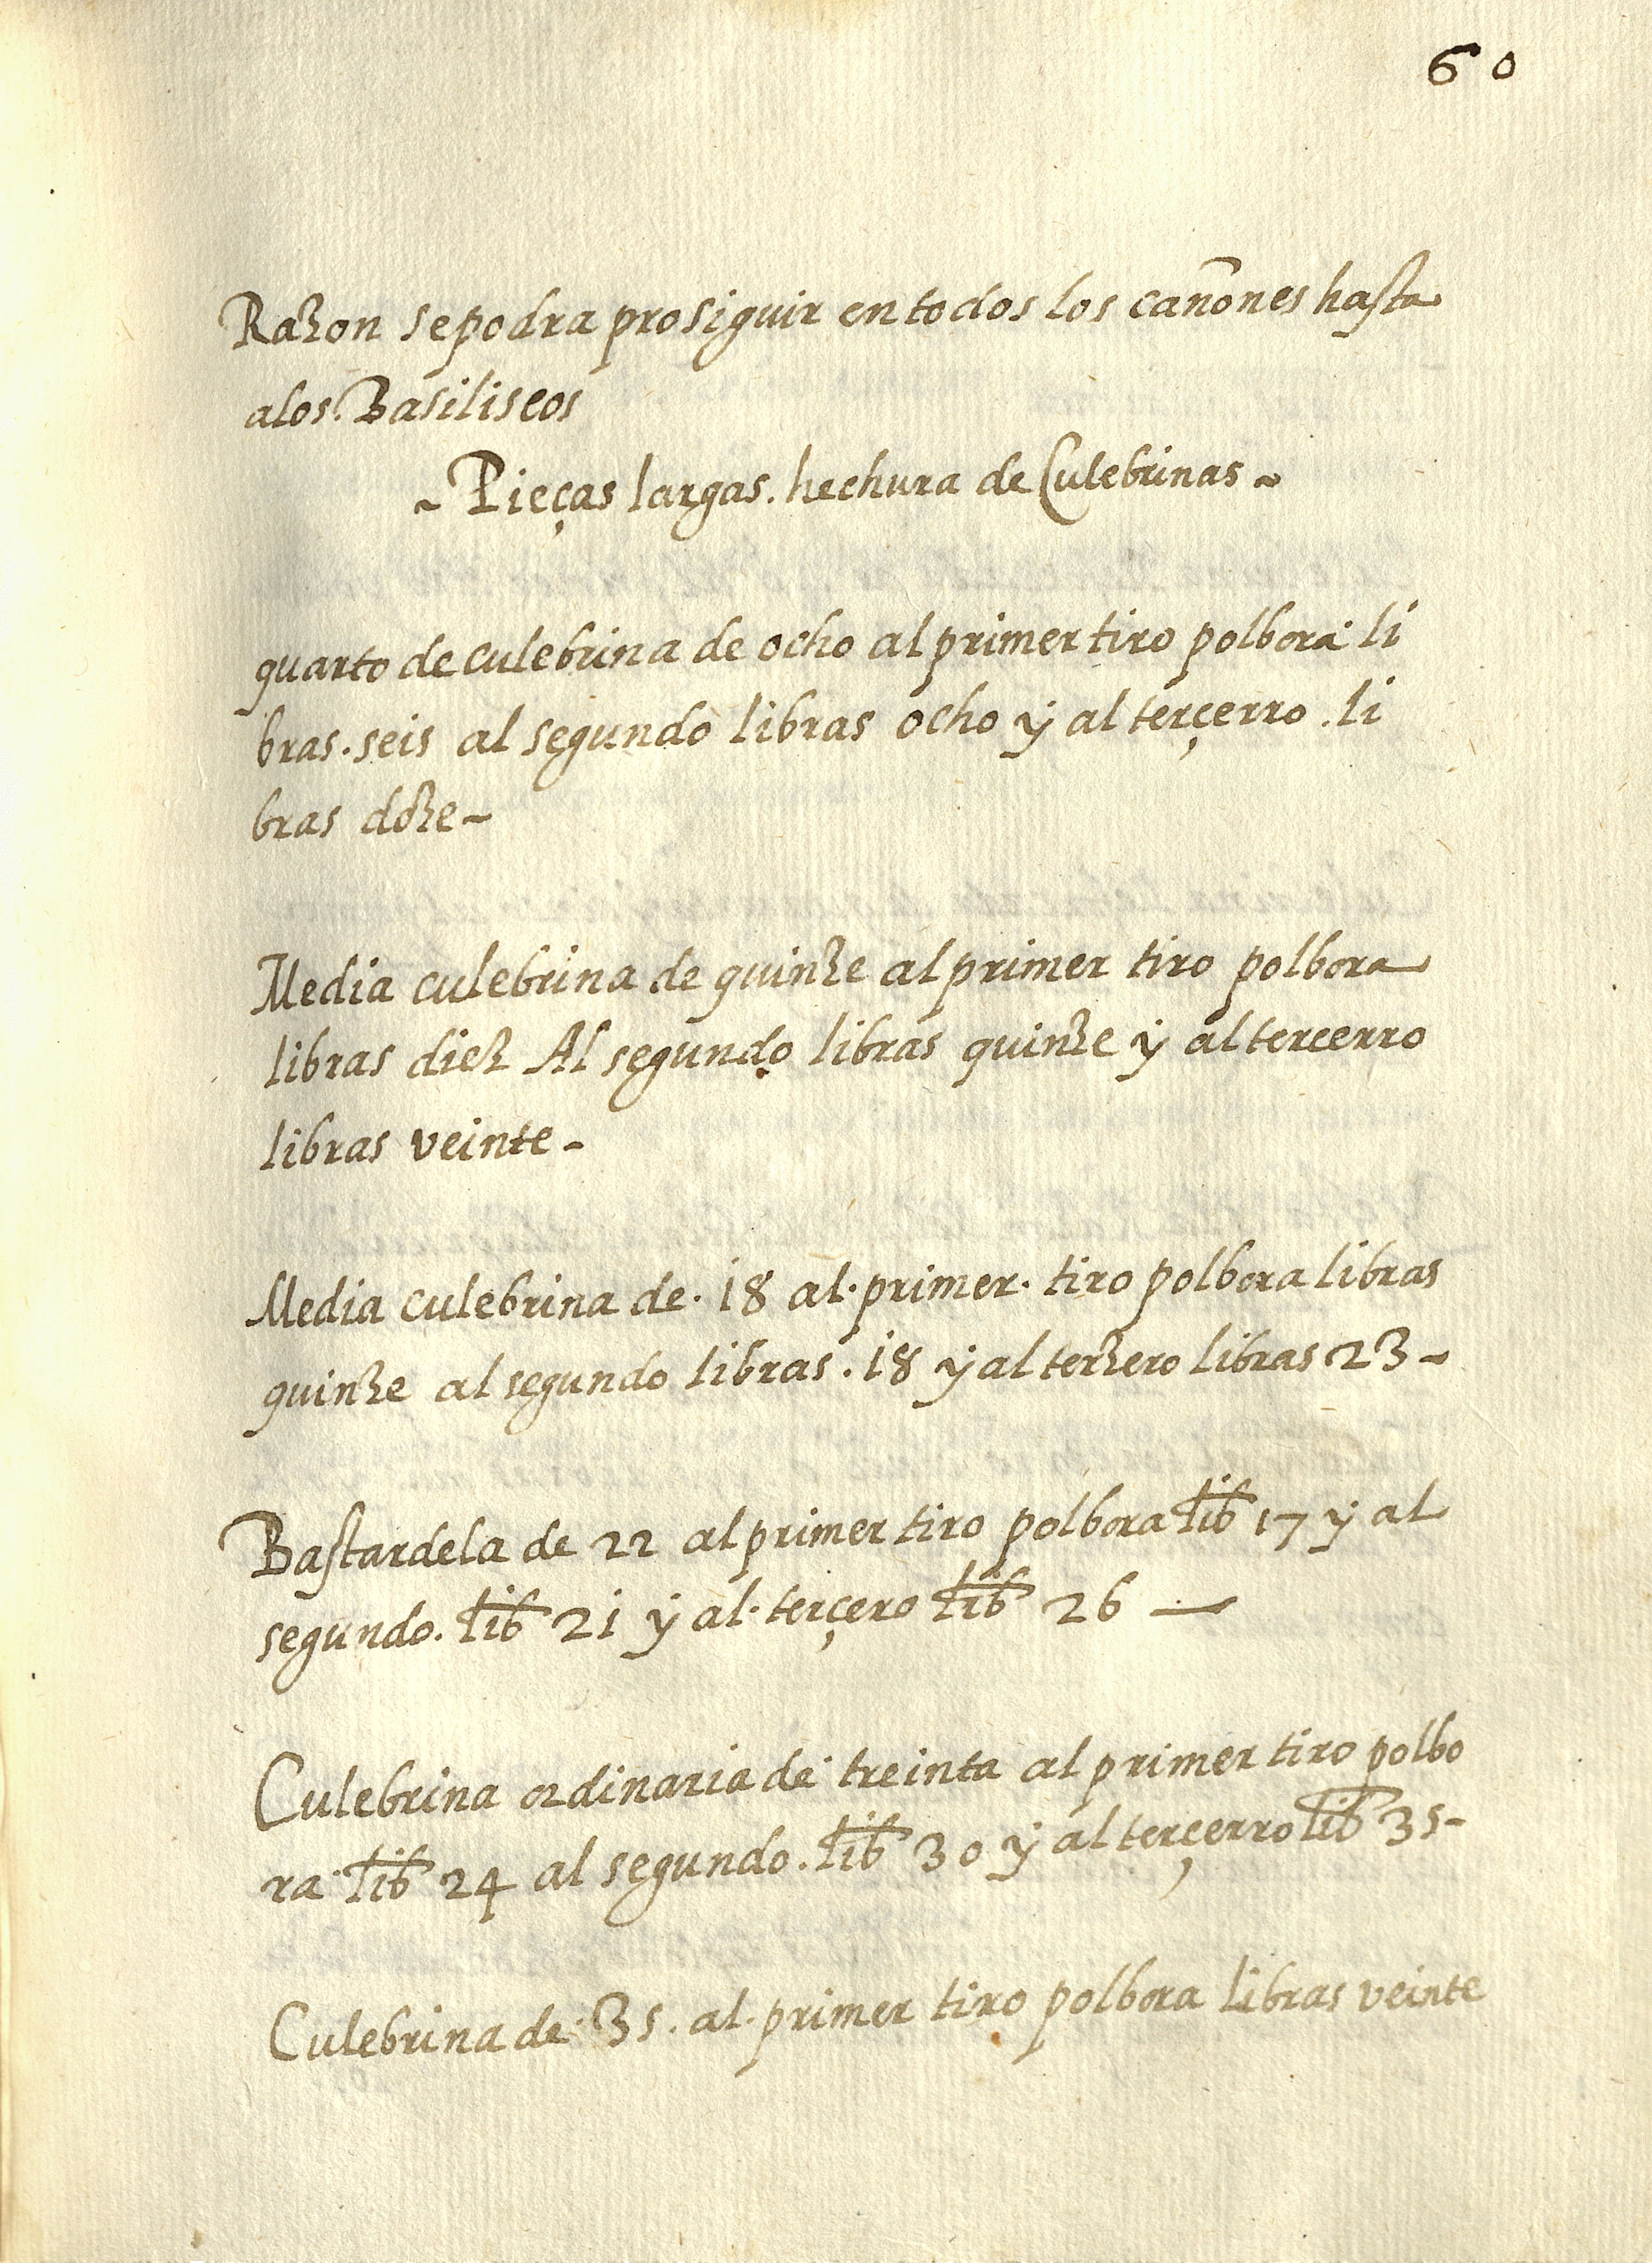 60
Razon sepodra prosiguir en todos los cañones hasta
alos. Basiliscos
~ Pieças largas. hechura de Culebrinas ~
quarto de culebrina de ocho al primer tiro polbora li
bras. seis al segundo libras ocho y al terçerro. li
bras doze ~
Media culebrina de quinze al primer tiro polbora
libras diez Al segundo libras quinze y al tercerro
libras veinte -
Media culebrina de. 18 al. primer. tiro polbora libras
quinze al segundo libras. 18 y al terzero libras 23 ~
Bastardela de 22 al primer tiro polbora lib 17 y al
segundo. lib 21 y al. terçero lib 26 —
Culebrina ordinaria de treinta al primer tiro polbo
ra lib 24 al segundo. lib 30 y al terçerro lib 35 -
Culebrina de. 35. al. primer tiro polbora libras veinte